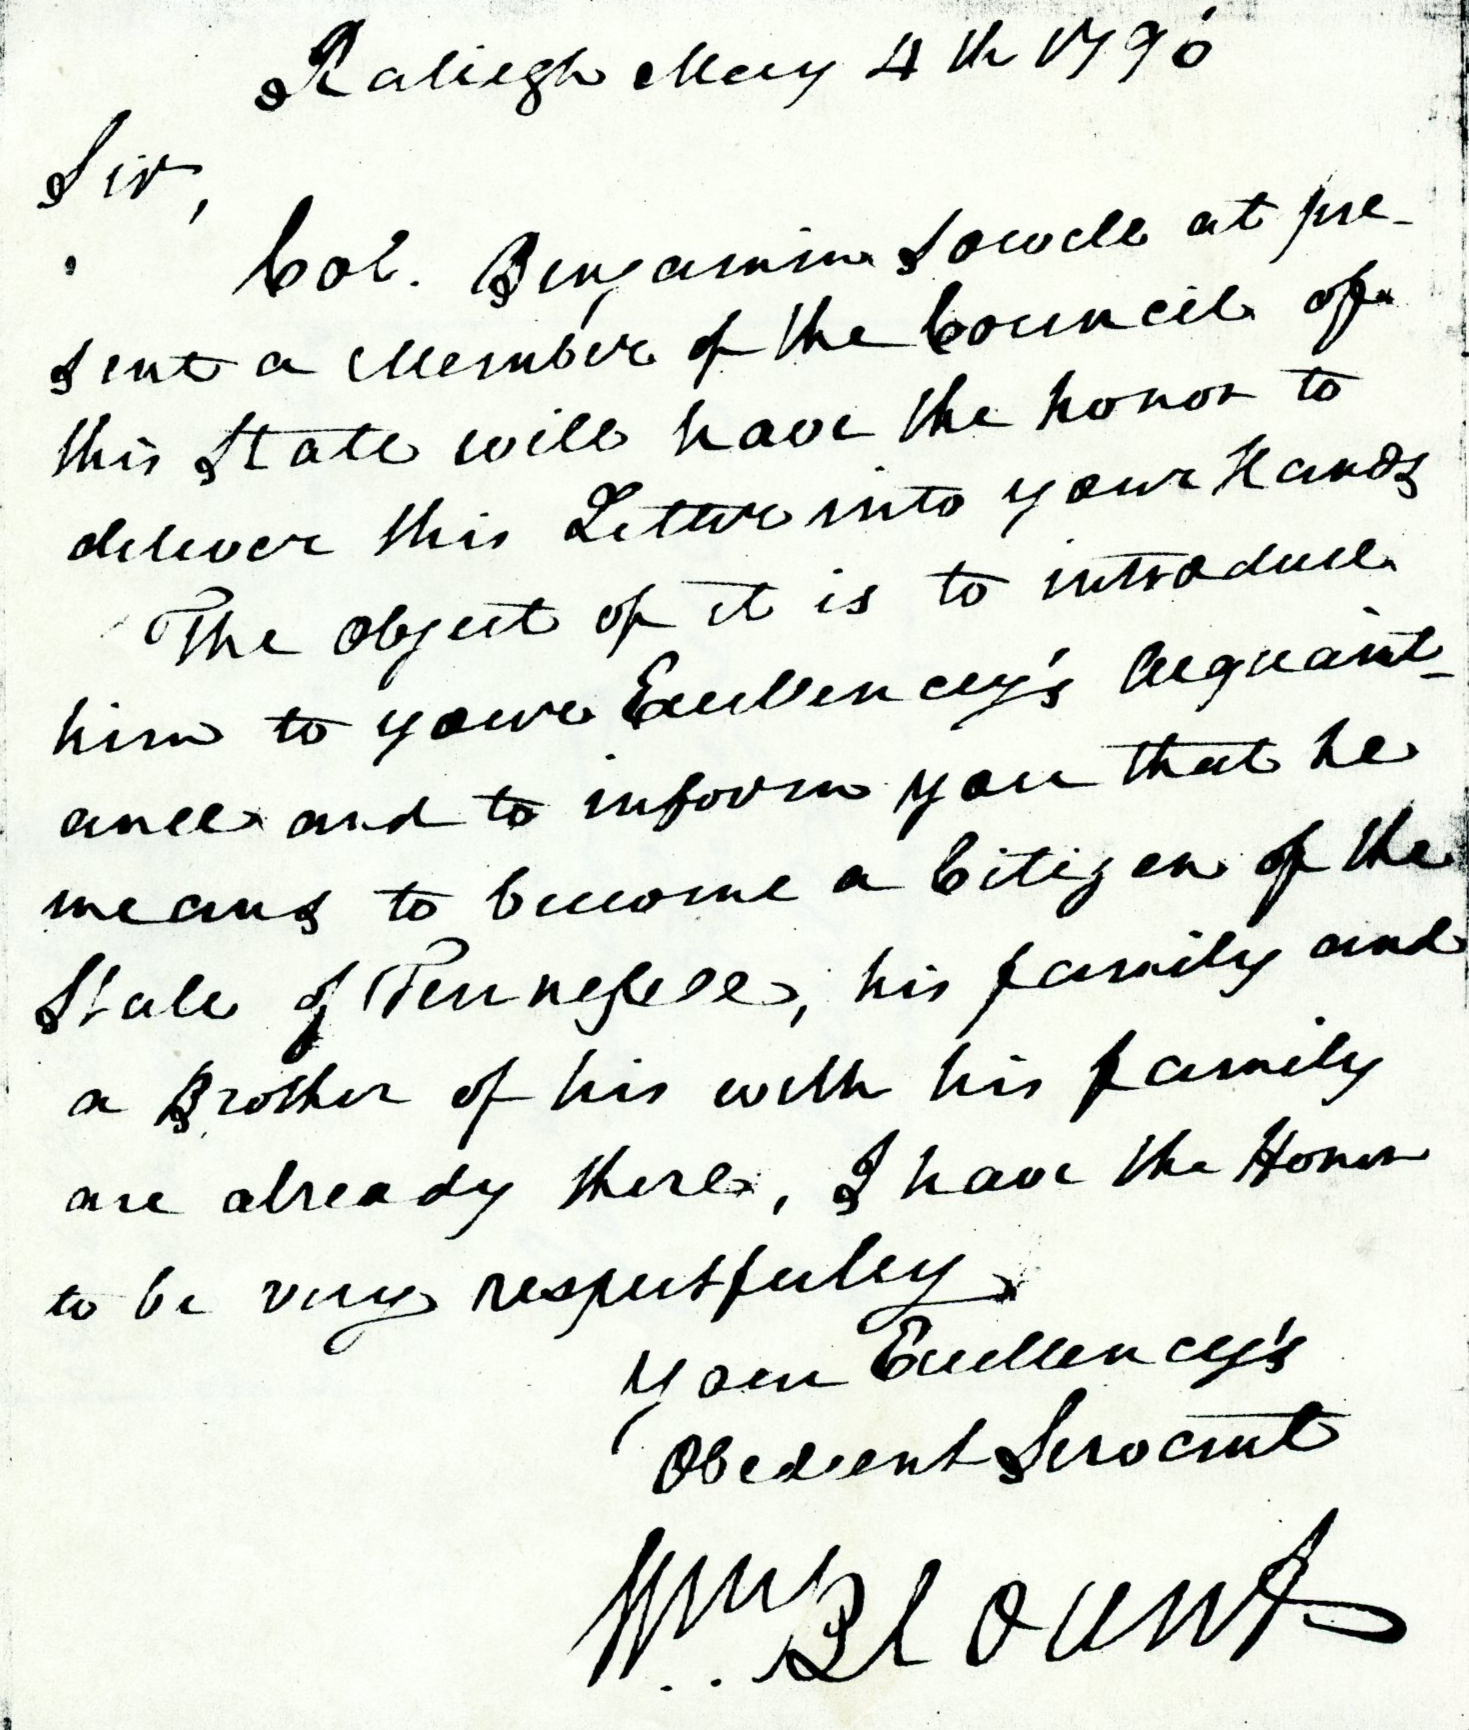 Raliegh May 4th 1796
Sir,
Col. Benjamin Sowell at pre-
sent a Member of the Council of
this State will have the honor to
deliver this Letter into your Hands
The object of it is to introduce
him to your Excellency's Acquaint-
ance and to inform you that he
means to become a Citizen of the
State of Tennessee, his family and
a Brother of his with his family
are already there, I have the Honor
to be very respectfully
Your Excellency's
Obedient Servant
Wm Blount